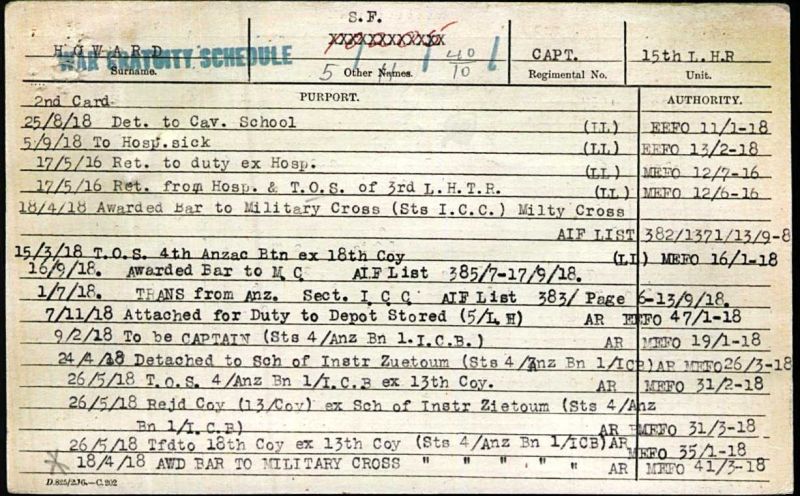 S.F.
HOWARD XXXXXXXXXXXX 40/10 CAPT. 15th L.H.R
WAR GRATUITY SCHEDULE
Surname. 5 Other Names. Regimental No. Unit.
2nd Card PURPORT. AUTHORITY.
25/8/18 Det. to Cav. School (LL) EEFO 11/1-18
5/9/18 To Hosp.sick (LL) EEFO 13/2-18
17/5/16 Ret. to duty ex Hosp. (LL) MEFO 12/7-16
17/5/16 Ret. from Hosp. & T.O.S. of 3rd L.H.T.R. (LL) MEFO 12/6-16
18/4/18 Awarded Bar to Military Cross (Sts I.C.C.) Milty Cross
AIF LIST 382/1371/13/9-8
15/3/18 T.O.S. 4th Anzac Btn ex 18th Coy (LL) MEFO 16/1-18
16/9/18. Awarded Bar to M C AIF List 385/7-17/9/18.
1/7/18. TRANS from Anz. Sect. I C C AIF List 383/ Page 6-13/9/18.
7/11/18 Attached for Duty to Depot Stored (5/L H) AR EEFO 47/1-18
9/2/18 To be CAPTAIN (Sts 4/Anz Bn 1.I.C.B.) AR MEFO 19/1-18
24/4/18 Detached to Sch of Instr Zuetoum (Sts 4/Anz Bn 1/ICB)AR MEFO26/3-18
26/5/18 T.O.S. 4/Anz Bn 1/I.C.B ex 13th Coy. AR MEFO 31/2-18
26/5/18 Rejd Coy (13/Coy) ex Sch of Instr Zietoum (Sts 4/Anz
Bn 1/I.C.B) AR MEFO 31/3-18
26/5/18 Tfdto 18th Coy ex 13th Coy (Sts 4/Anz Bn 1/ICB)AR MEFO 35/1-18
18/4/18 AWD BAR TO MILITARY CROSS " " " " " AR MEFO 41/3-18
D.825/2.16.—C.202